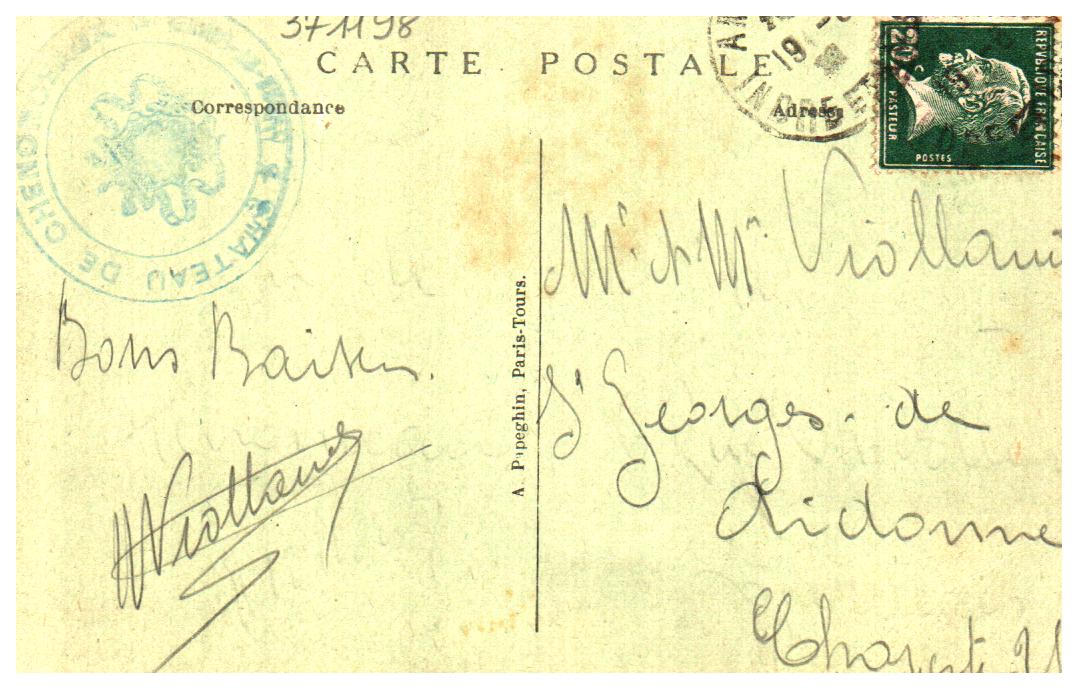 371198
CARTE POSTALE
Correspondance
Adresse
CHATEAU DE CHENONCEAUX
19
INDRE ET
REPUBLIQUE FRANÇAISE
20c
PASTEUR
POSTES
Bons Baisers.
Violland
A. Papeghin, Paris-Tours.
Mr et Mm Violland
St Georges. de
Didonne
Charente